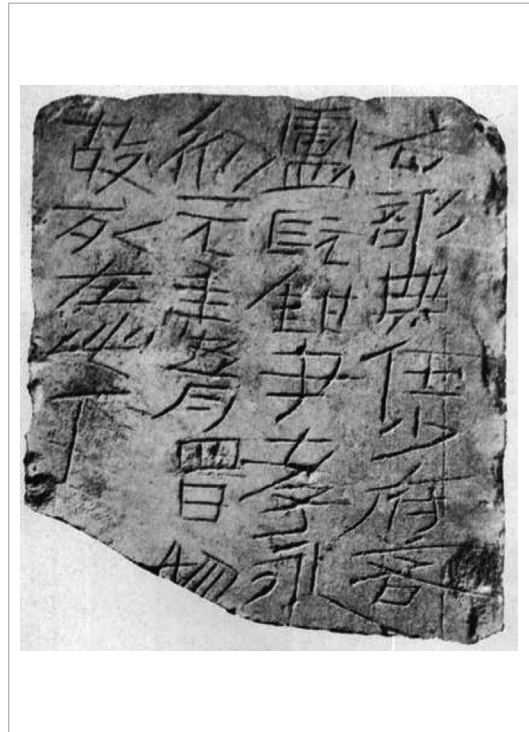 右部無任少府若
盧髡鉗尹孝永
初元年五月四日物
故死在此下